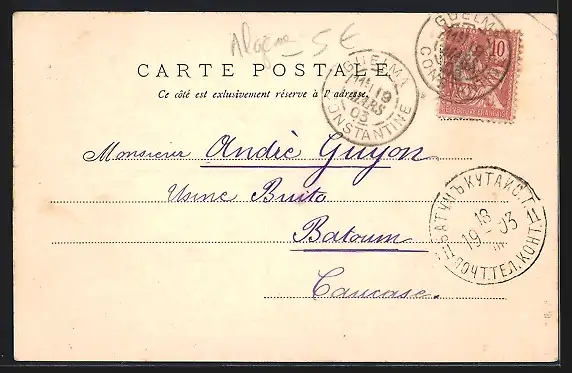 Algérie 5 €
CARTE POSTALE
Ce côté est exclusivement réservé à l'adresse.
GUELMA
19
MARS
03
CONSTANTINE
GUELMA
10
Monsieur André Guyon
Usine Buito
Batoum
Caucase.
БАТУМЪ КУТАИС. Г.
18
19 03
ПОЧТ.ТЕЛ.КОНТ.